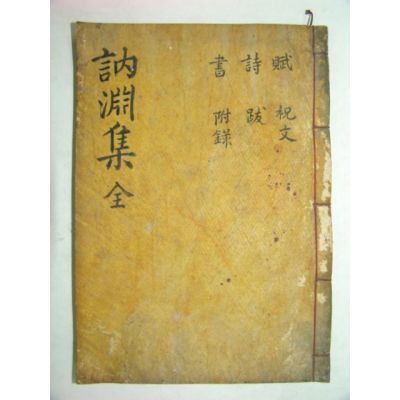 訥淵集 全
賦 祝文
詩 跋
書 附錄